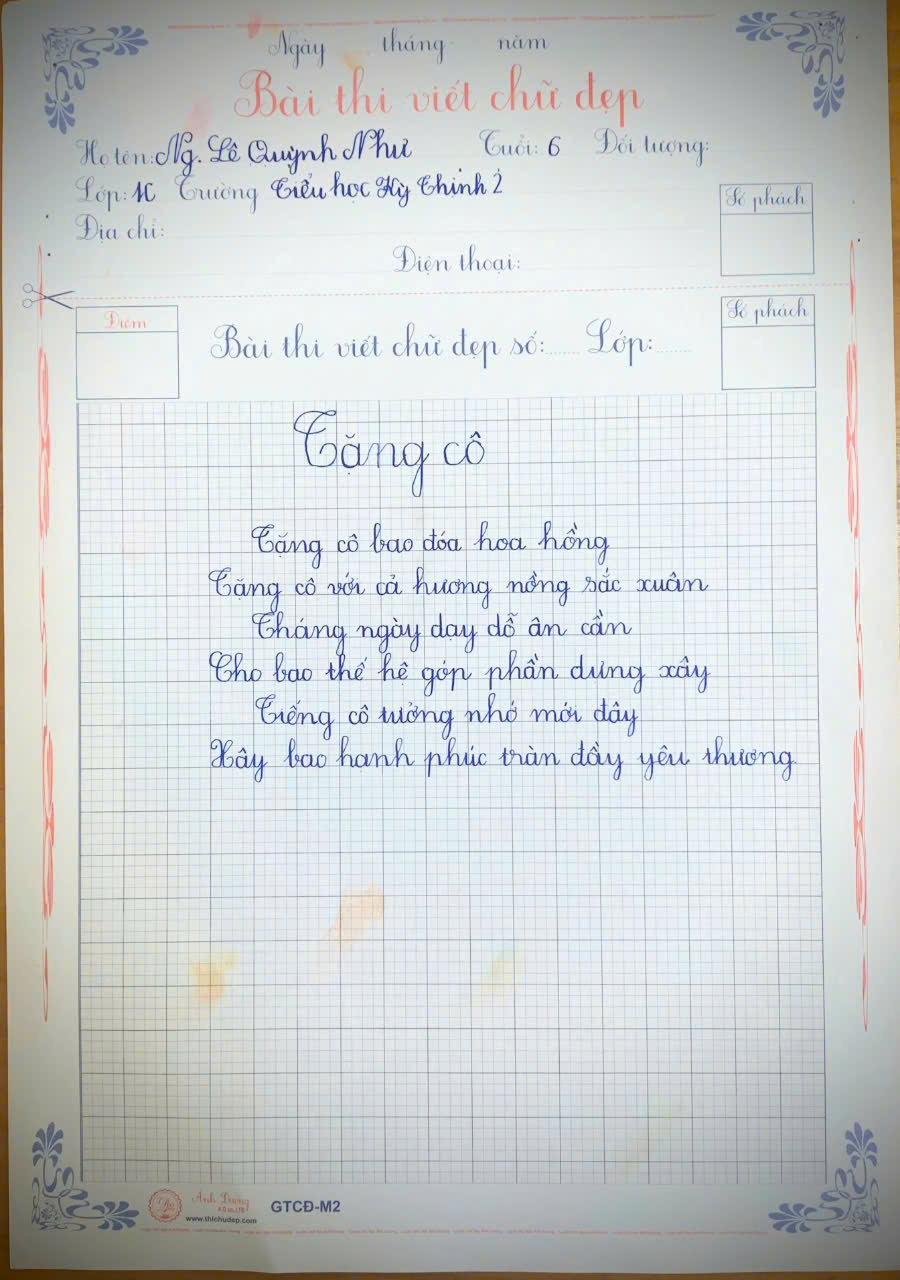 Ngày tháng năm
Bài thi viết chữ đẹp
Họ tên: Ng. Lê Quỳnh Như Tuổi: 6 Đối tượng:
Lớp: 1C Trường Tiểu học Kỳ Thịnh 2
Số phách
Địa chỉ:
Điện thoại:
Điểm
Bài thi viết chữ đẹp số: Lớp:
Số phách
Tặng cô
Tặng cô bao đóa hoa hồng
Tặng cô với cả hương nồng sắc xuân
Tháng ngày dạy dỗ ân cần
Cho bao thế hệ góp phần dưng xây
Tiếng cô tưởng nhớ mới đây
Xây bao hạnh phúc tràn đầy yêu thương.
Ánh Dương
www.thichudep.com
GTCĐ-M2